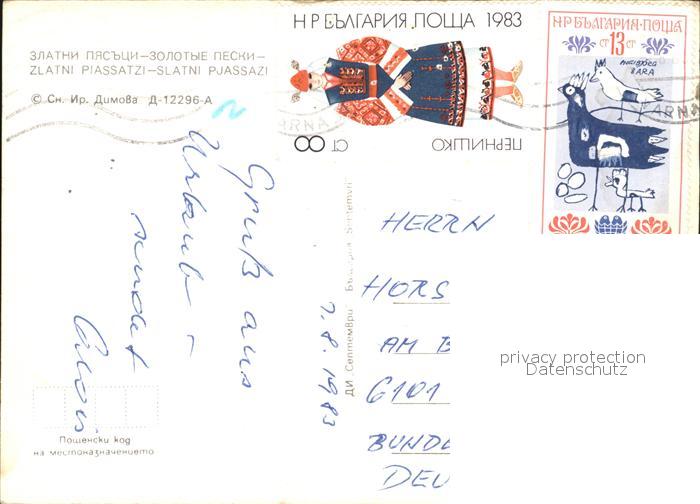 ЗЛАТНИ ПЯСЪЦИ—ЗОЛОТЫЕ ПЕСКИ—
ZLATNI PIASSATZI—SLATNI PJASSAZI
© Сн. Ир. Димова Д-12296-А
НР БЪЛГАРИЯ.ПОЩА 1983
ПЕРНИШКО
8 СТ
НР БЪЛГАРИЯ·ПОЩА
СТ 13 СТ
ARNA
Gruß aus
Urlaub –
sendet
7.8.1983
ДИ „Септември“
HERRN
HORS
AM B
6101
BUNDE
DEU
privacy protection
Datenschutz
Пощенски код
на местоназначението